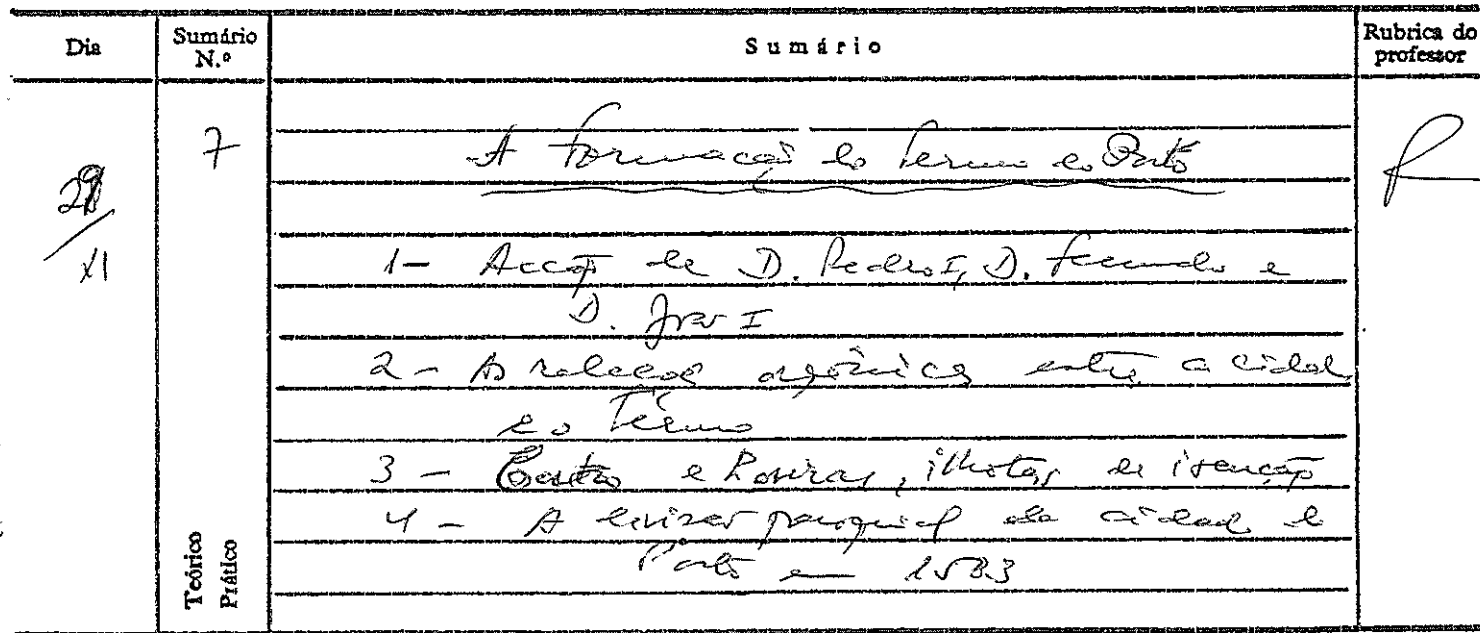 Dia
Sumário N.º
Sumário
Rubrica do professor
7
/XI
A Formação do Termo do Porto
1- Acção de D. Pedro I, D. Fernando e
D. João I
2- As relações orgânicas entre a cidade
e o Termo
3- e , ilhotas de isenção
4- A divisão paroquial da cidade do
Porto em 1583
Teórico
Prático